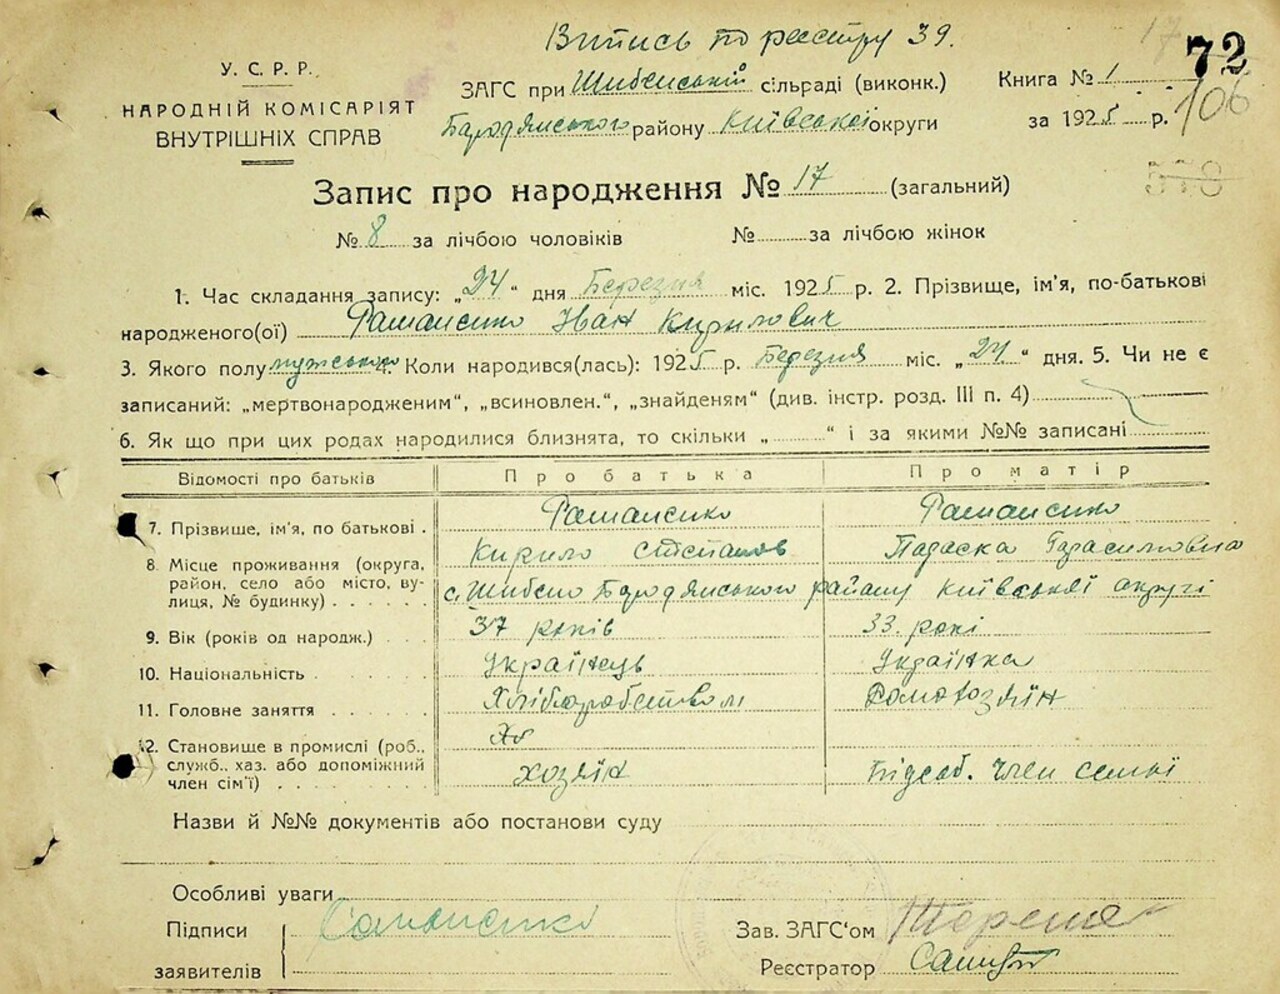 Випись по реєстру 39.
17
72
У. С. Р. Р.
НАРОДНІЙ КОМІСАРІЯТ
ВНУТРІШНІХ СПРАВ
ЗАГС при Шибенській сільраді (виконк.)
Бородянського району Київської округи
Книга № 1
за 1925 р.
106
578
Запис про народження № 17 (загальний)
№ 8 за лічбою чоловіків № за лічбою жінок
1. Час складання запису: „24“ дня Березня міс. 1925 р. 2. Прізвище, ім'я, по-батькові
народженого(ої) Іван Кирилович
3. Якого полу мужського 4. Коли народився(лась): 1925 р. Березня міс. „24“ дня. 5. Чи не є
записаний: „мертвонародженим“, „всиновлен.“, „знайденям“ (див. інстр. розд. III п. 4)
6. Як що при цих родах народилися близнята, то скільки „ “ і за якими №№ записані
Відомості про батьків Про батька Про матір
7. Прізвище, ім'я, по батькові .
Кирило Гарасимовна
8. Місце проживання (округа, район, село або місто, вулиця, № будинку) . . . . . .
с. Шибено Бородянського району Київської округі
9. Вік (років од народж.) . . 37 років 33. рокі
10. Національність . . . . . . Українець Українка
11. Головне заняття . . . . . . Хліборобством
Хо
12. Становище в промислі (роб., служб., хаз. або допоміжний член сім'ї) . . . . . . .
хозяїн Підсоб. член семьї
Назви й №№ документів або постанови суду
Особливі уваги
Підписи
заявителів
Зав. ЗАГС‘ом
Реєстратор